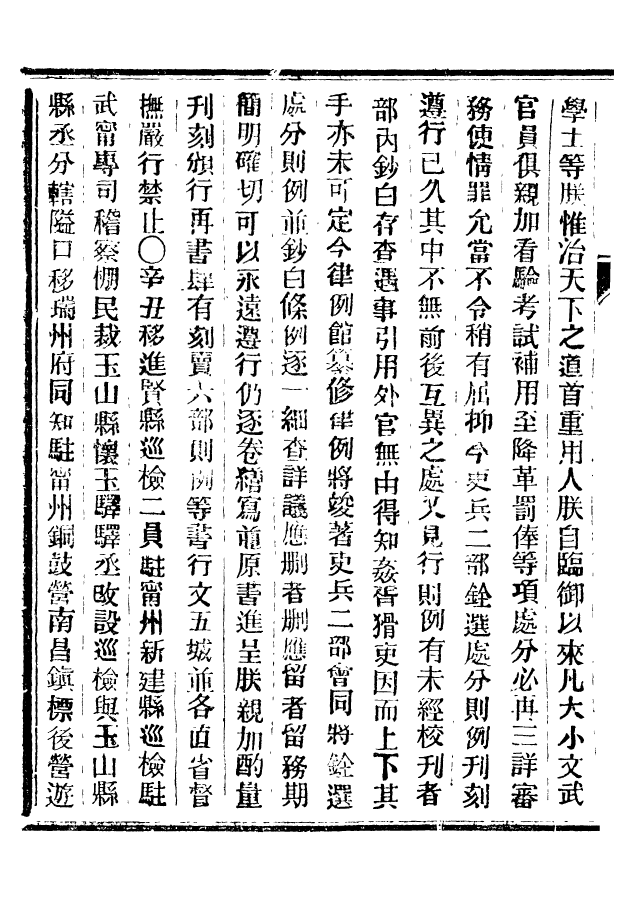 學士等朕惟治天下之道首重用人朕自臨御以來凡大小文武
官員俱親加看驗考試補用至降革罰俸等項處分必再三詳審
務使情罪允當不令稍有屈抑今吏兵二部銓選處分則例刊刻
遵行已久其中不無前後互異之處又見行則例有未經校刊者
部內鈔白存查遇事引用外官無由得知姦胥猾吏因而上下其
手亦未可定今律例館纂修律例將竣著吏兵二部會同將銓選
處分則例並鈔白條例逐一細查詳議應删者删應留者留務期
簡明確切可以永遠遵行仍逐卷繕寫並原書進呈朕親加酌量
刊刻頒行再書肆有刻賣六部則例等書行文五城並各直省督
撫嚴行禁止〇辛丑移進賢縣巡檢二員駐甯州新建縣巡檢駐
武甯專司稽察棚民裁玉山縣懷玉驛驛丞改設巡檢與玉山縣
縣丞分轄隘口移瑞州府同知駐甯州銅鼓營南昌鎮標後營遊